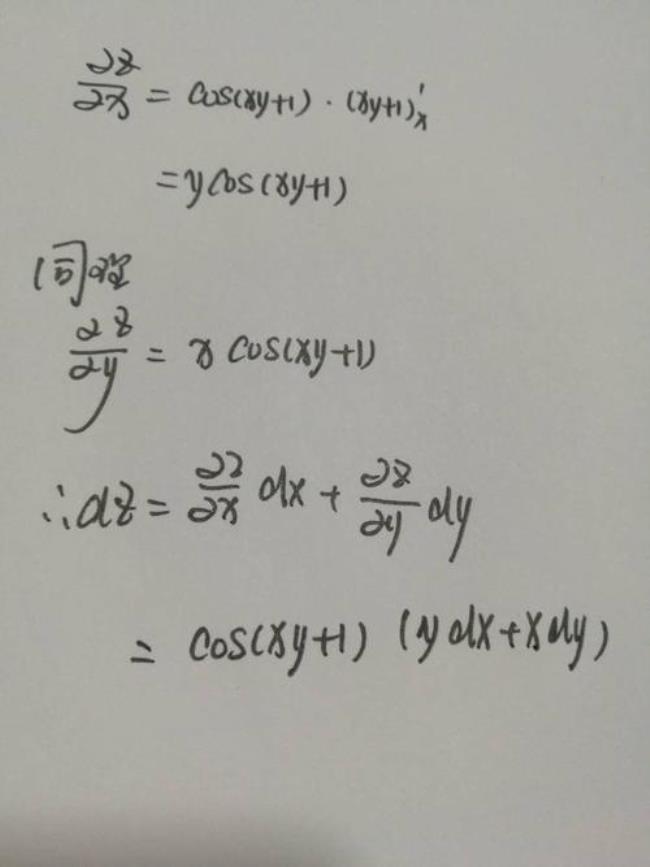 ∂z/∂x = cos(xy+1) · (xy+1)'ₓ
= y cos(xy+1)
同理
∂z/∂y = x cos(xy+1)
∴ dz = ∂z/∂x dx + ∂z/∂y dy
= cos(xy+1) (y dx + x dy)